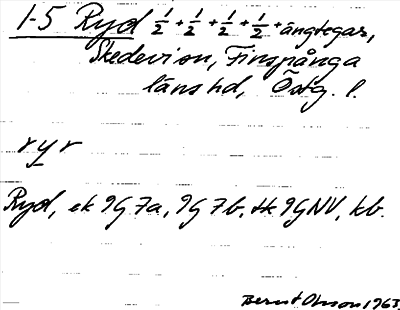 1-5 Ryd 1/2 + 1/2 + 1/2 + 1/2 + ängtegar,
Skedevi sn, Finspånga
läns hd, Östg. l.
ryr
Ryd, ek 9G 7a, 9G 7b, tk 9G NV, kb.
Bernt Olsson 1963.